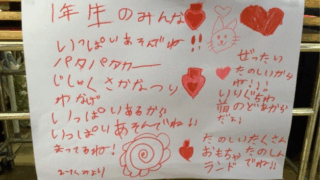 1年生のみんな
いっぱいあそびね!!
パタパタカー
じしゃくさかなつり
わなげ
いっぱいあるが!!
いっぱいあそんでね!!
まってるね!
2-1しのより
ぜったい
たのしいから
ね!!!
いりぐちわ
たのしいたくさん
おもちゃたのしん
ランドでね!!